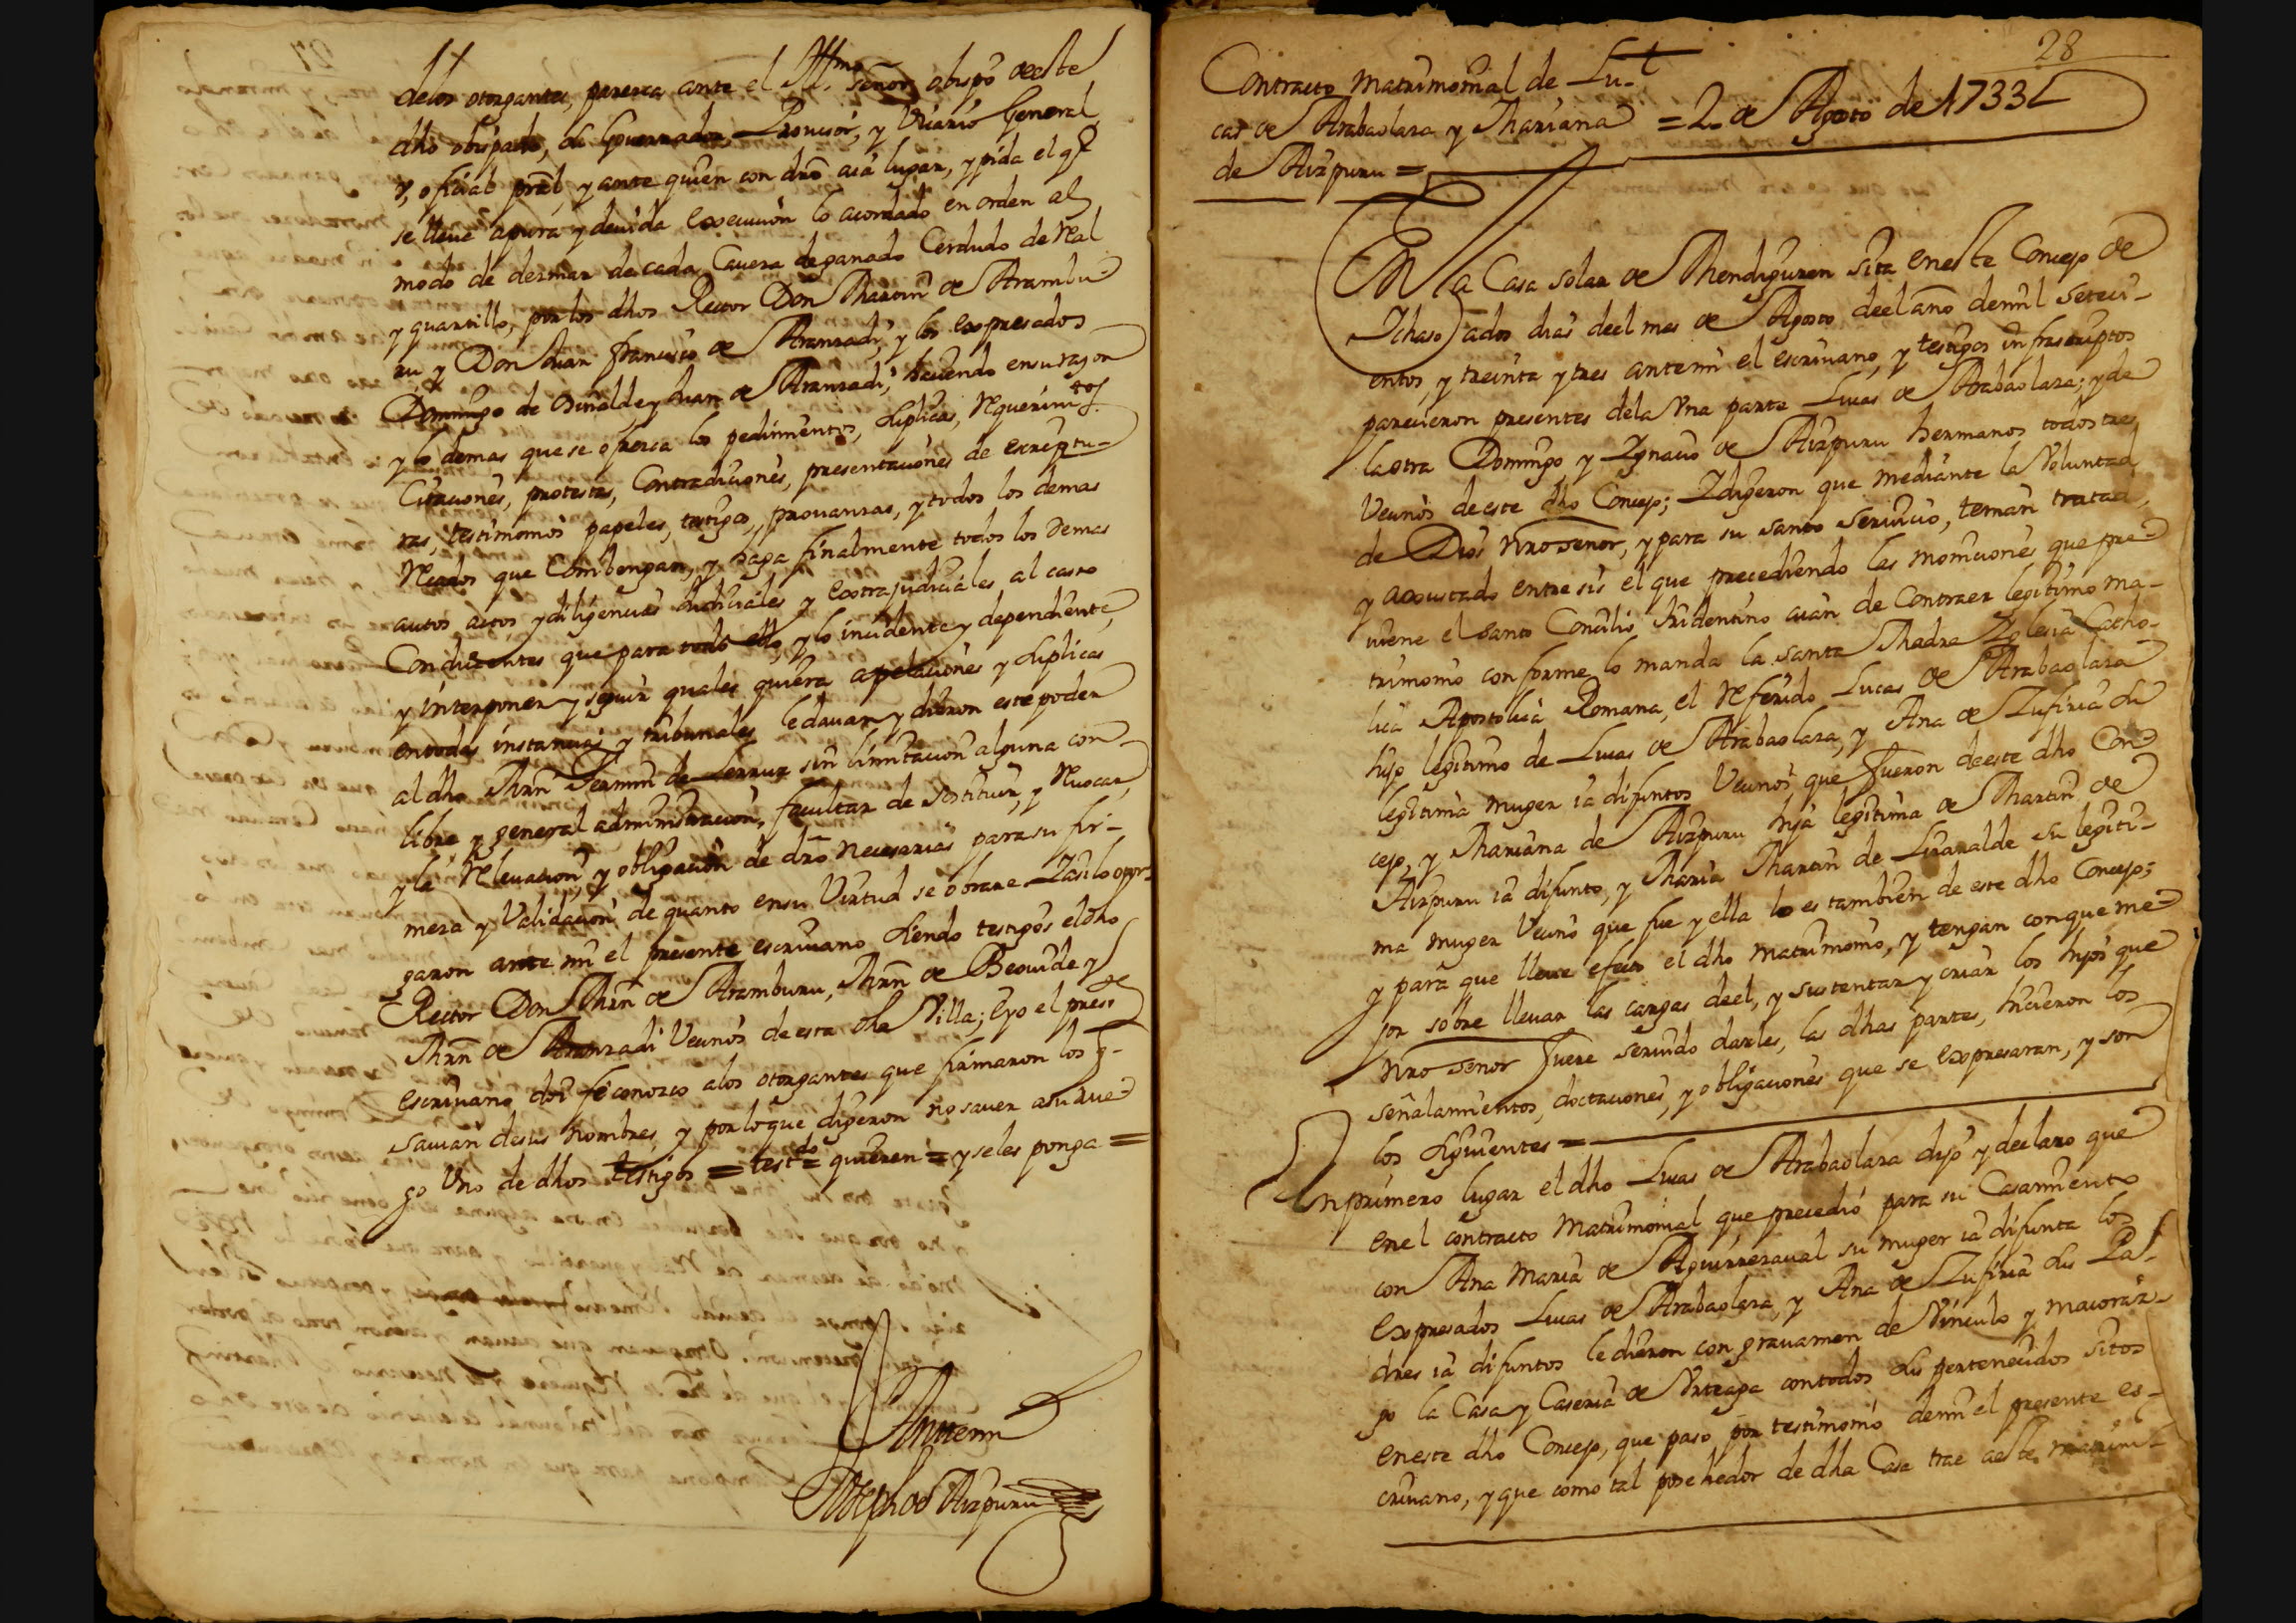 delos otorgantes, paresca ante el Ill.mo señor obispo de este
dho obispado, su Governador Provisor, y Vicario General
y, oficial pral, y ante quien con dro aia lugar, y pida el q̃
se lleve apura y devida execuzion lo acordado en orden al
modo de dezmar de cada Cavera de ganado Cerdudo de Real
y quartillo, por los dhos Rector Don Martin de Arambu-
ru y Don Juan francisco de Aranzadi, y los expresados
Domingo de y Juan de Aranzadi, haciendo en su razon
y lo demas que se ofresca los pedimentos, suplicas, Requerim.tos
Citaciones, protestas, Contradiciones, presentaciones de escriptu-
ras, testimonios papeles, testigos, provanzas, y todos los demas
Recados que Combengan, y haga finalmente todos los demas
autos actos y diligencias Judiciales y extrajudiciales al casso
Conduzentes que para todo ello, y lo incidente y dependiente,
y interponer y seguir quales quiera apelaciones y suplicas
en todas instancias y tribunales le davan y dieron este poder
al dho Mrn Fermin de sin limitacion alguna con
libre y general administracion, facultar de sostituir, y Revocar,
y la Relevacion, y obligacion de dro necesarias para su fir-
meza y Validacion de quanto en su Virtud se obrare. I asi lo otor-
garon ante mi el presente escrivano siendo testigos el dho
Rector Don Mrn de Aramburu, Mrn de Beovide y
Mrn de Aranzadi Vecinos de esta dha Villa; e yo el pres.te
escrivano doi fe conozco alos otorgantes que firmaron los q̃
savian desus nombres, y por lo que digeron no saver a su rue-
go Vno de dhos testigos = test.do = quieren = y seles ponga =
Ante mi
Joseph de Aizpuru
28
Contracto Matrimonial de Lu-
cas de Arabaolaza y Mariana = 2. de Agosto de 1733
de Aizpuru =
En la Casa solar de Mendiguren sita en este Concejo de
Ichaso ados dias deel mes de Agosto deel año demil seteci-
entos, y treinta y tres ante mi el escrivano, y testigos infrascriptos
parecieron presentes dela Vna parte Lucas de Arabaolaza; y de
la otra Domingo y Ignacio de Aizpuru hermanos todos tres
Vecinos de este dho Concejo; I digeron que mediante la Voluntad
de Dios nro senor, y para su santo servicio, tenian tratad,
y axustado entre sis el que precediendo las moniciones que pre-
viene el santo Concilio tridentino aian de Contraer legitimo ma-
trimonio conforme lo manda la santa Madre Iglesia Catho-
lica Apostolica Romana, el Referido Lucas de Arabaolaza
hijo legitimo de Lucas de Arabaolaza, y Ana de Zufiria su
legitima muger ia difuntos Vecinos que fueron de este dho Con-
cejo, y Mariana de Aizpuru hija legitima de Martin de
Aizpuru ia difunto, y Maria Martin de Lizaralde su legiti-
ma muger Vecino que fue y ella lo es tambien de este dho Concejo;
y para que lleve efecto el dho matrimonio, y tengan conque me-
jor sobre llevar las cargas deel, y sustentar y criar los hijos que
nro senor fuere servido darles, las dhas partes, hicieron los
señalamientos, doctaciones, y obligaciones que se expresaran, y son
los siguientes =
En primero lugar el dho Lucas de Arabaolaza dijo y declaro que
en el contracto Matrimonial que precedió para su Casamiento
con Ana Maria de Aguirrezaval su muger ia difunta los
expresados Lucas de Arabaolaza, y Ana de Zufiria sus Pa-
dres ia difuntos le dieron con gravamen de Vinculo y maioraz-
go la Casa y Caseria de Vrteaga con todos sus pertenecidos sitos
en este dho Concejo, que pasó por testimonio demi el presente es-
crivano, y que como tal posehedor de dha Casa trae a este matrimo-